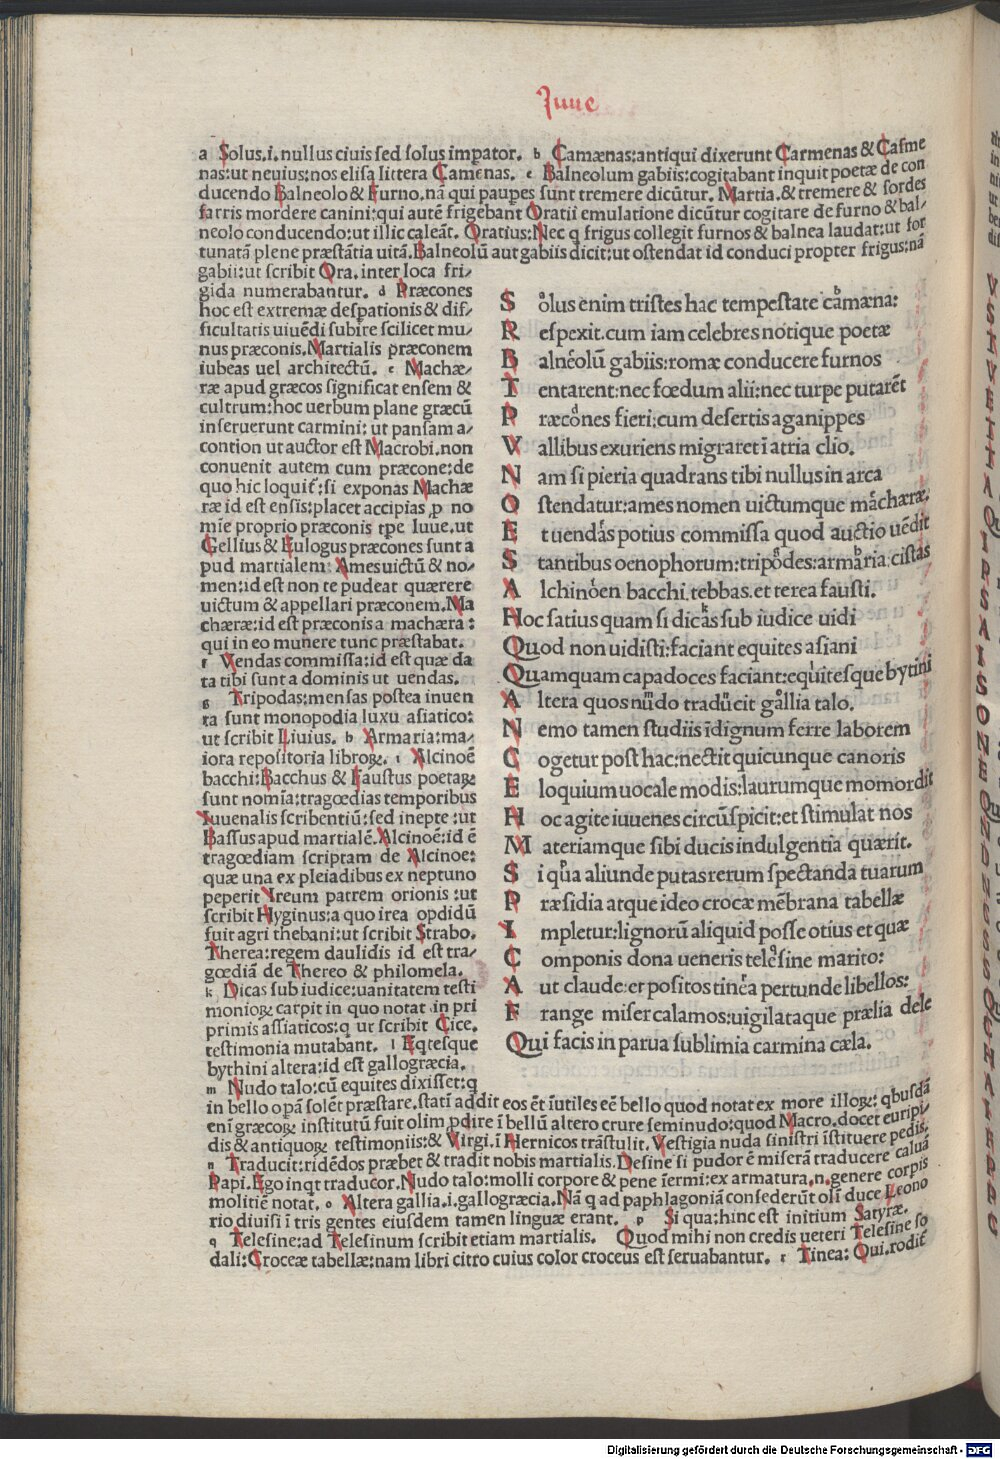 Juue
a Solus.i.nullus ciuis sed solus impator. b Camænas:antiqui dixerunt Carmenas & Casme
nas:ut neuius:nos elisa littera Camenas. c Balneolum gabiis:cogitabant inquit poetæ de con
ducendo Balneolo & Furno.nã qui paupes sunt tremere dicũtur. Martia.& tremere & sordes
farris mordere canini:qui autẽ frigebant Oratii emulatione dicũtur cogitare de furno & bal-
neolo conducendo:ut illic caleãt. Oratius:Nec q frigus collegit furnos & balnea laudat:ut for
tunatã plene præstãtia uitã.Balneolũ aut gabiis dicit:ut ostendat id conduci propter frigus:nã
gabii:ut scribit Ora.inter loca fri-
gida numerabantur. d Præcones
hoc est extremæ despationis & dif-
ficultatis uiuẽdi subire scilicet mu-
nus præconis.Martialis præconem
iubeas uel architectũ. e Machæ-
ræ apud græcos significat ensem &
cultrum:hoc uerbum plane græcũ
inseruerunt carmini: ut pansam a-
contion ut auctor est Macrobi.non
conuenit autem cum præcone:de
quo hic loquit̃:si exponas Machæ
ræ id est ensis:placet accipias ꝓ no
mĩe proprio præconis tꝑe Iuue.ut
Gellius & Eulogus præcones sunt a
pud martialem: Ames uictũ & no-
men:id est non te pudeat quærere
uictum & appellari præconem.Ma
chæræ:id est præconis a machæra:
qui in eo munere tunc præstabat.
f Vendas commissa:id est quæ da
ta tibi sunt a dominis ut uendas.
g Tripodas:mensas postea inuen
ta sunt monopodia luxu asiatico:
ut scribit Liuius. h Armaria:ma-
iora repositoria libroꝝ. i Alcinoẽ
bacchi:Bacchus & Faustus poetaꝝ
sunt nomĩa:tragœdias temporibus
Iuuenalis scribentiũ:sed inepte:ut
Bassus apud martialẽ.Alcinoẽ:id ẽ
tragœdiam scriptam de Alcinoe:
quæ una ex pleiadibus ex neptuno
peperit Yreum patrem orionis:ut
scribit Hyginus:a quo irea opdidũ
fuit agri thebani:ut scribit Strabo.
Therea:regem daulidis id est tra-
gœdiã de Thereo & philomela.
k Dicas sub iudice:uanitatem testi
monioꝝ carpit in quo notat in pri
primis assiaticos:q ut scribit Cice.
testimonia mutabant. l Eqtesque
bythini altera:id est gallogræcia.
m Nudo talo:cũ equites dixisset:q
S olus enim tristes hac tempestate camæna:
R espexit.cum iam celebres notique poetæ
B alneolũ gabiis:romæ conducere furnos
T entarent:nec fœdum alii:nec turpe putarẽt
P ræcones fieri:cum desertis aganippes
V allibus exuriens migraret ĩ atria clio.
N am si pieria quadrans tibi nullus in arca
O stendatur:ames nomen uictumque machæræ.
E t uendas potius commissa quod auctio uẽdit
S tantibus oenophorum:tripodes:armaria:cistas
A lchinoen bacchi.tebbas.et terea fausti.
Hoc satius quam si dicas sub iudice uidi
Quod non uidisti:faciant equites asiani
Quamquam capadoces faciant:equitesque bytini
A ltera quos nudo traducit gallia talo.
N emo tamen studiis ĩdignum ferre laborem
C ogetur post hac:nectit quicunque canoris
E loquium uocale modis:laurumque momordit
H oc agite iuuenes circũspicit:et stimulat nos
M ateriamque sibi ducis indulgentia quærit.
S i qua aliunde putas rerum spectanda tuarum
P ræsidia atque ideo crocæ mẽbrana tabellæ
I mpletur:lignorũ aliquid posse otius et quæ
C omponis dona ueneris telesine marito:
A ut claude:et positos tinea pertunde libellos:
F range miser calamos:uigilataque prælia dele
Qui facis in parua sublimia carmina cæla.
in bello opã solẽt præstare.statĩ addit eos ẽt ĩutiles eẽ bello quod notat ex more illoꝝ: qbusdã
enĩ græcoꝝ institutũ fuit olim ꝓdire ĩ bellũ altero crure seminudo:quod Macro.docet euripi-
dis & antiquoꝝ testimoniis:& Virgi.ĩ Hernicos trãstulit.Vestigia nuda sinistri ĩstituere pedis.
n Traducit:ridẽdos præbet & tradit nobis martialis.Desine si pudor ẽ miserã traducere caluã
Papi.Ego inqt traducor.Nudo talo:molli corpore & pene ĩermi:ex armatura.n.genere corpis
molitiẽ notat̃. o Altera gallia.i.gallogræcia.Nã q ad paphlagoniã consederũt oli duce Leono
rio diuisi ĩ tris gentes eiusdem tamen linguæ erant. p Si qua:hinc est initium Satyræ.
q Telesine:ad Telesinum scribit etiam martialis. Quod mihi non credis ueteri Telesine so
dali:Croceæ tabellæ:nam libri citro cuius color croceus est seruabantur. r Tinea: Qui.rodit̃
Digitalisierung gefördert durch die Deutsche Forschungsgemeinschaft - DFG